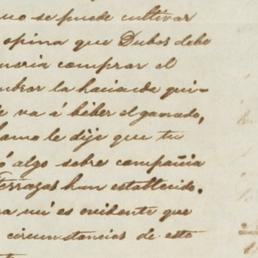 uno se puede cultivar
opina que Dubos debe
comprar el
la hacienda qui-
va á béber el ganado,
amo le dije que tu
ó algo sobre compañia
Terrazas han establecido.
a mi es evidente que
circunstancias de esto